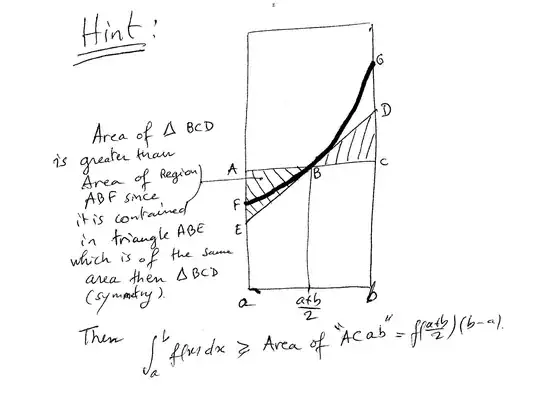 Hint:
Area of Δ BCD
is greater than
Area of Region
ABF since
it is contained
in triangle ABE
which is of the same
area then Δ BCD
(symmetry).
G
D
A
B
C
F
E
a
a+b
2
b
Then
∫_a^b f(x) dx ⩾ Area of "ACab" = f(a+b/2)(b-a).